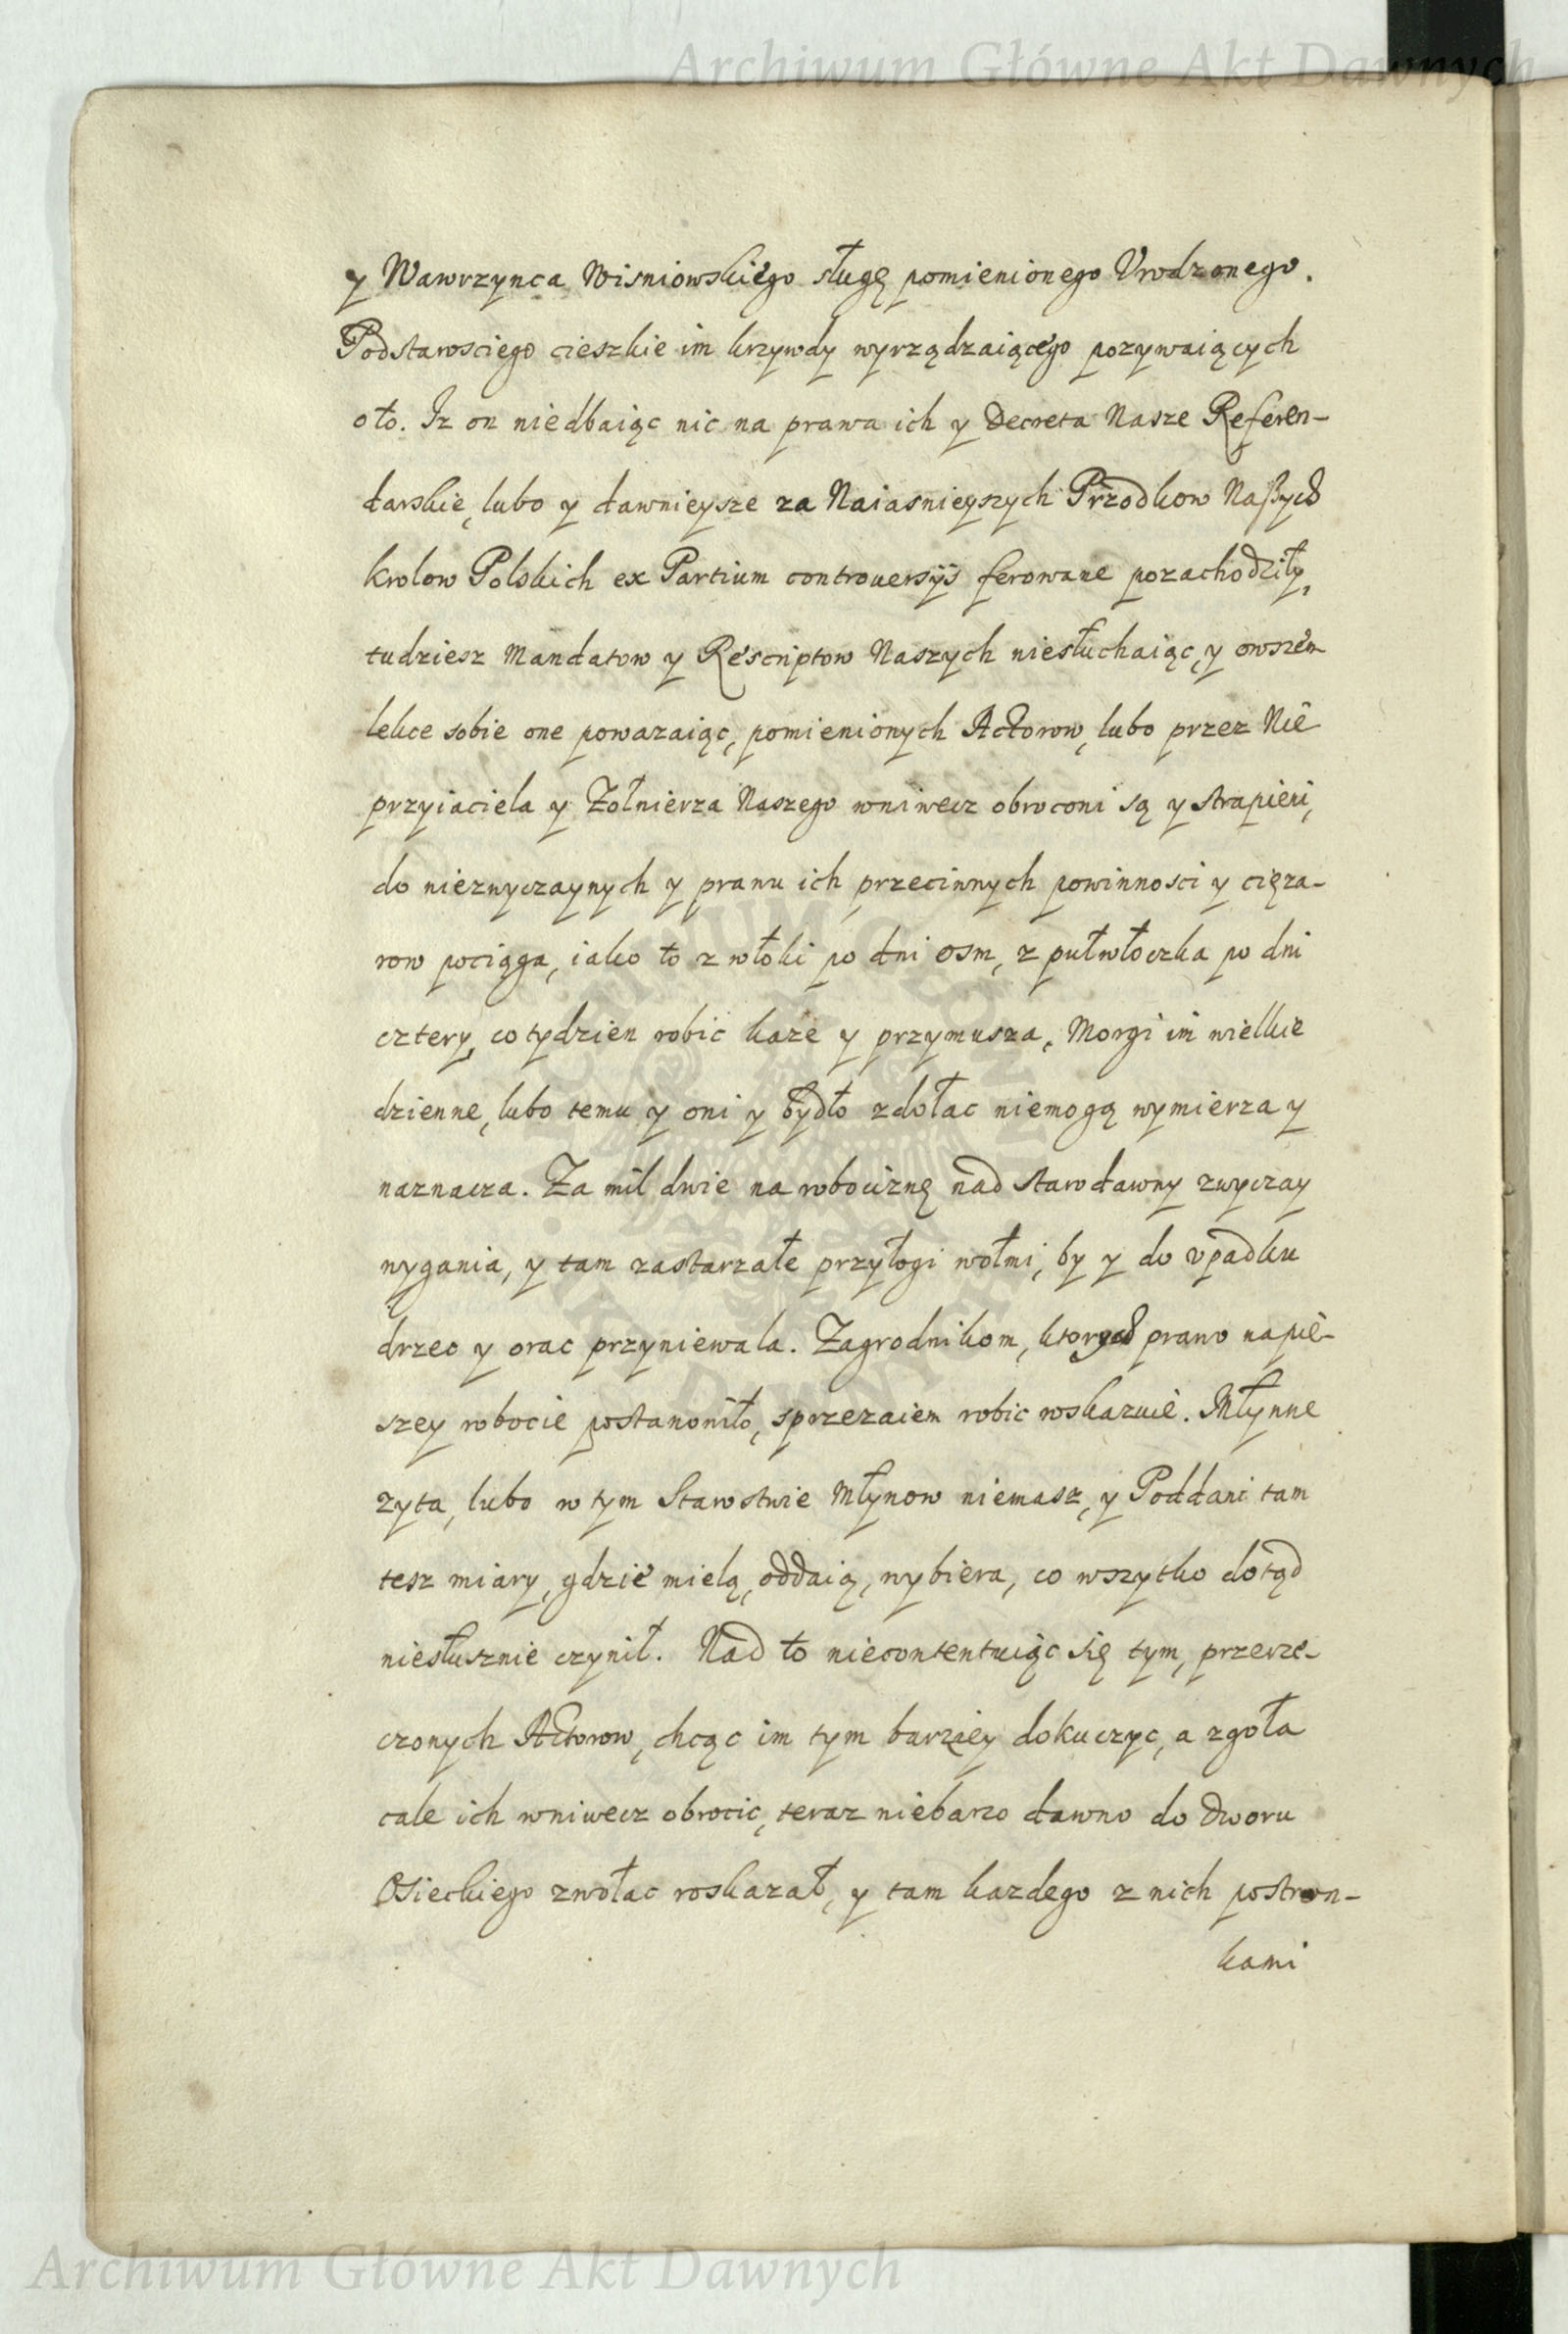 Archiwum Główne Akt Dawnych
y Wawrzynca Wisniowskiego sługę pomienionego Vrodzonego.
Podstarosciego cieszkie im krzywdy wyrządzaiącego pozywaiących
oto. Iz on niedbaiąc nic na prawa ich y Decreta Nasze Referen-
darskie, lubo y dawnieysze za Naiasnieyszych Przodkow Naszych
krolow Polskich ex Partium controuersys ferowane pozachodziły,
tudziesz Mandatow y Rescriptow Naszych niesłuchaiąc, y owszem
lekce sobie one powazaiąc, pomienionych Actorow, lubo przez Nie
przyiaciela y Zołnierza Naszego wniwecz obroconi są y strapieni,
do niezwyczaynych y prawu ich przeciwnych powinnosci y cięza-
row pociąga, iako to z włoki po dni osm, z pułwłoczka po dni
cztery, co tydzien robic kaze y przymusza, Morgi im wielkie
dzienne, lubo temu y oni y bydło zdołac niemogą wymierza y
naznacza. Za mil dwie na robociznę nad starodawny zwyczay
wygania, y tam zastarzałe przyłogi wołmi, by y do vpadku
drzec y orac przyniewala. Zagrodnikom, ktorych prawo napie-
szey robocie postanowiło, sprzezaiem robic roskazuie. Młynne
zyta, lubo w tym Starostwie Młynow niemasz, y Poddani tam
tesz miary, gdzie mielą, oddaią, wybiera, co wszytko dotąd
niesłusznie czynił. Nad to niecontentuiąc się tym, przerze-
czonych Actorow, chcąc im tym barziey dokuczyc, a zgoła
cale ich wniwecz obrocic, teraz niebarzo dawno do Dworu
Osieckiego zwołac roskazał, y tam kazdego z nich postron-
kami
Archiwum Główne Akt Dawnych